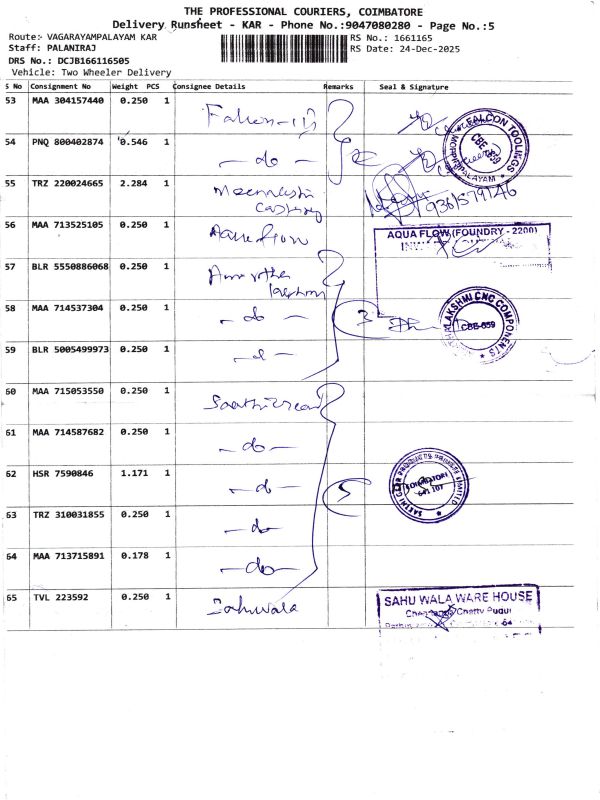 THE PROFESSIONAL COURIERS, COIMBATORE
Delivery Runsheet - KAR - Phone No.:9047080280 - Page No.:5
Route: VAGARAYAMPALAYAM KAR
RS No.: 1661165
Staff: PALANIRAJ
RS Date: 24-Dec-2025
DRS No.: DCJB166116505
Vehicle: Two Wheeler Delivery
S No Consignment No Weight PCS Consignee Details Remarks Seal & Signature
53 MAA 304157440 0.250 1
54 PNQ 800402874 0.546 1 - do -
FALCON TOOLINGS
CBE-659
55 TRZ 220024665 2.284 1
9361579146
56 MAA 713525105 0.250 1
AQUA FLOW (FOUNDRY - 2200)
57 BLR 5550886068 0.250 1
58 MAA 714537304 0.250 1 - do - 3
LAKSHMI CNC COMPONENTS
CBE-659
59 BLR 5005499973 0.250 1 - d -
60 MAA 715053550 0.250 1
61 MAA 714587682 0.250 1 - do -
62 HSR 7590846 1.171 1 - d - 5
COIMBATORE
641 107
63 TRZ 310031855 0.250 1 - do -
64 MAA 713715891 0.178 1 - do -
65 TVL 223592 0.250 1 Sahuwala
SAHU WALA WARE HOUSE